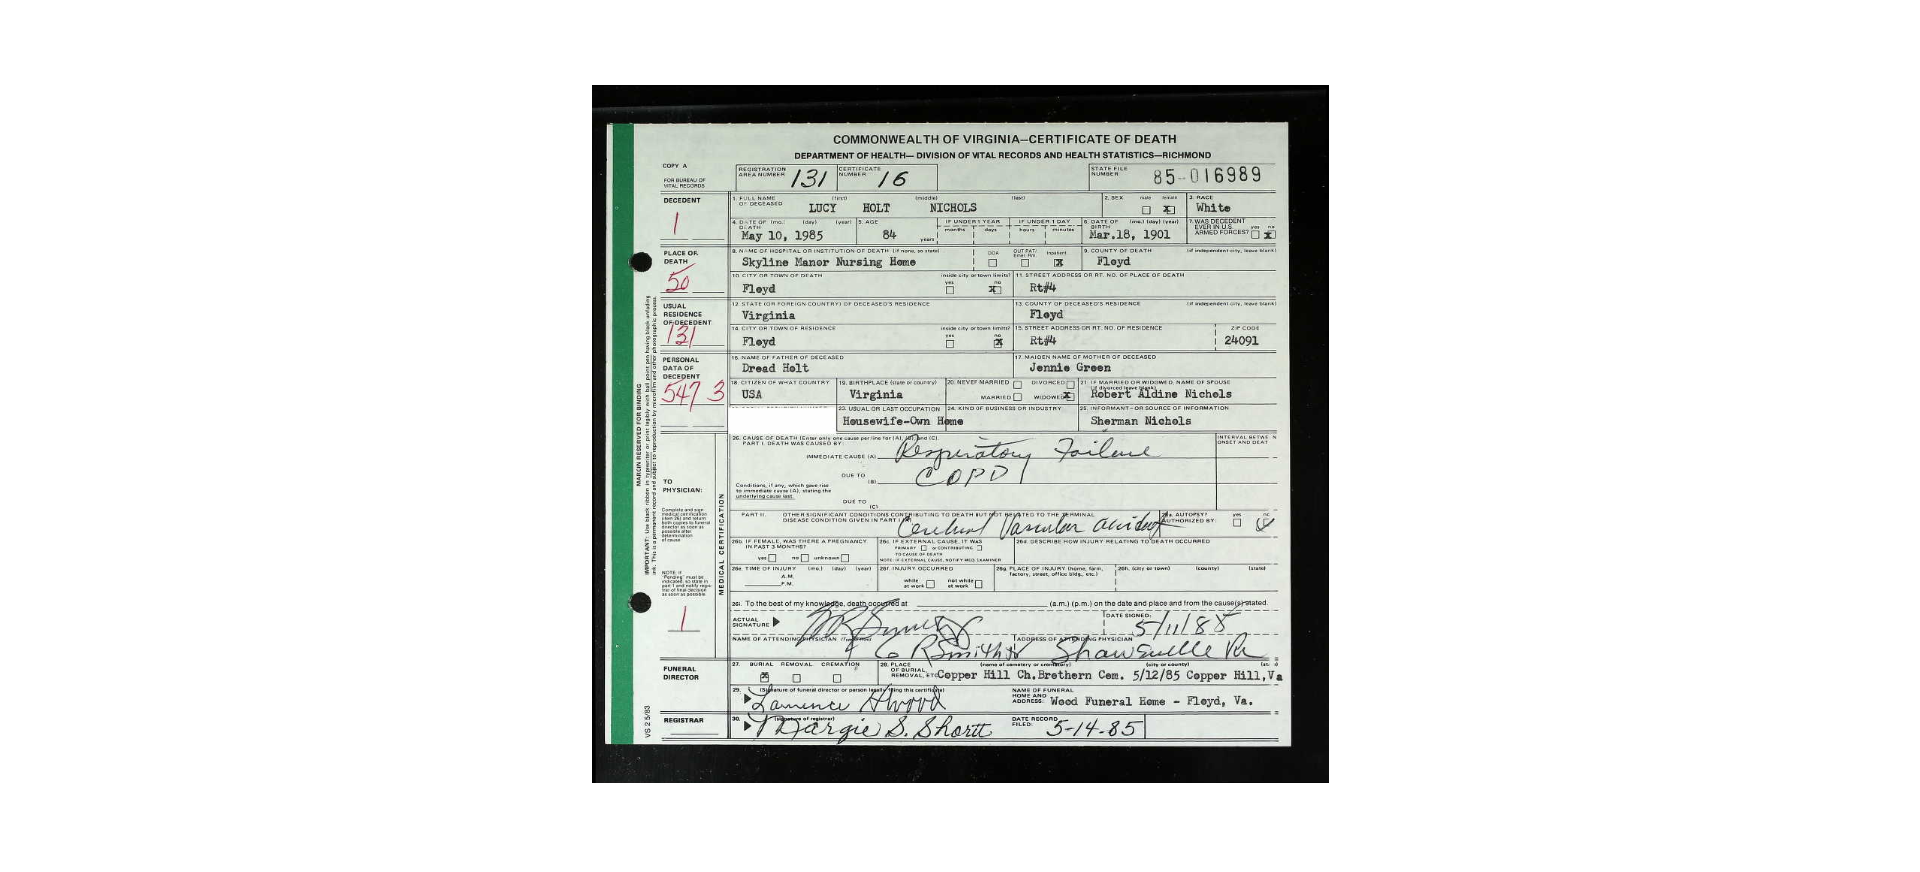 COMMONWEALTH OF VIRGINIA—CERTIFICATE OF DEATH
DEPARTMENT OF HEALTH—DIVISION OF VITAL RECORDS AND HEALTH STATISTICS—RICHMOND
COPY A
FOR BUREAU OF VITAL RECORDS
REGISTRATION AREA NUMBER 131
CERTIFICATE NUMBER 16
STATE FILE NUMBER 85-016989
DECEDENT
1
1. FULL NAME OF DECEASED (first) (middle) (last)
LUCY HOLT NICHOLS
2. SEX male female X
3. RACE White
4. DATE OF DEATH (mo.) (day) (year) May 10, 1985
5. AGE 84 years
IF UNDER 1 YEAR months days
IF UNDER 1 DAY hours minutes
6. DATE OF BIRTH (mo.) (day) (year) Mar.18, 1901
7. WAS DECEDENT EVER IN U.S. ARMED FORCES? yes no X
PLACE OF DEATH
50
8. NAME OF HOSPITAL OR INSTITUTION OF DEATH (if none, so state)
Skyline Manor Nursing Home
DOA OUTPAT/ Emer Rm Inpatient X
9. COUNTY OF DEATH (if independent city, leave blank)
Floyd
10. CITY OR TOWN OF DEATH inside city or town limits? yes no X
Floyd
11. STREET ADDRESS OR RT. NO. OF PLACE OF DEATH
Rt#4
USUAL RESIDENCE OF DECEDENT
131
12. STATE (OR FOREIGN COUNTRY) OF DECEASED'S RESIDENCE
Virginia
13. COUNTY OF DECEASED'S RESIDENCE (if independent city, leave blank)
Floyd
14. CITY OR TOWN OF RESIDENCE inside city or town limits? yes no X
Floyd
15. STREET ADDRESS OR RT. NO. OF RESIDENCE ZIP CODE
Rt#4 24091
PERSONAL DATA OF DECEDENT
547 3
16. NAME OF FATHER OF DECEASED
Dread Holt
17. MAIDEN NAME OF MOTHER OF DECEASED
Jennie Green
18. CITIZEN OF WHAT COUNTRY
USA
19. BIRTHPLACE (state or country)
Virginia
20. NEVER MARRIED DIVORCED
MARRIED WIDOWED X
21. IF MARRIED OR WIDOWED, NAME OF SPOUSE (if divorced leave blank)
Robert Aldine Nichols
23. USUAL OR LAST OCCUPATION
24. KIND OF BUSINESS OR INDUSTRY
Housewife-Own Home
25. INFORMANT-OR SOURCE OF INFORMATION
Sherman Nichols
TO PHYSICIAN:
Complete and sign medical certification (item 26) and return both copies to funeral director as soon as possible after determination of cause
NOTE: If "Pending" must be indicated, so state in part I and notify registrar of final decision as soon as possible
1
MEDICAL CERTIFICATION
26. CAUSE OF DEATH (Enter only one cause per line for (A), (B), and (C).
PART I. DEATH WAS CAUSED BY:
INTERVAL BETWEEN ONSET AND DEATH
IMMEDIATE CAUSE (A) Respiratory Failure
DUE TO (B) COPD
Conditions, if any, which gave rise to immediate cause (A), stating the underlying cause last.
DUE TO (C)
PART II. OTHER SIGNIFICANT CONDITIONS CONTRIBUTING TO DEATH BUT NOT RELATED TO THE TERMINAL DISEASE CONDITION GIVEN IN PART I
Cerebral Vascular accident
26a. AUTOPSY? AUTHORIZED BY: yes no
26b. IF FEMALE, WAS THERE A PREGNANCY IN PAST 3 MONTHS?
yes no unknown
26c. IF EXTERNAL CAUSE, IT WAS
PRIMARY or CONTRIBUTING
TO CAUSE OF DEATH
NOTE: IF EXTERNAL CAUSE, NOTIFY MED. EXAMINER
26d. DESCRIBE HOW INJURY RELATING TO DEATH OCCURRED
26e. TIME OF INJURY (mo.) (day) (year)
A.M.
P.M.
26f. INJURY OCCURRED
while at work not while at work
26g. PLACE OF INJURY (home, farm, factory, street, office bldg., etc.)
26h. (city or town) (county) (state)
26i. To the best of my knowledge, death occurred at (a.m.) (p.m.) on the date and place and from the cause(s) stated.
ACTUAL SIGNATURE
DATE SIGNED: 5/11/85
NAME OF ATTENDING PHYSICIAN
ADDRESS OF ATTENDING PHYSICIAN
Shawsville Va
FUNERAL DIRECTOR
27. BURIAL REMOVAL CREMATION
X
28. PLACE OF BURIAL REMOVAL, ETC. (name of cemetery or crematory) (city or county)
Copper Hill Ch.Brethern Cem. 5/12/85 Copper Hill,Va
29. (Signature of funeral director or person legally filing this certificate)
NAME OF FUNERAL HOME AND ADDRESS: Wood Funeral Home - Floyd, Va.
REGISTRAR
30. (signature of registrar)
Margie S. Shortt
DATE RECORD FILED: 5-14-85
VS 2 5/83
MARGIN RESERVED FOR BINDING